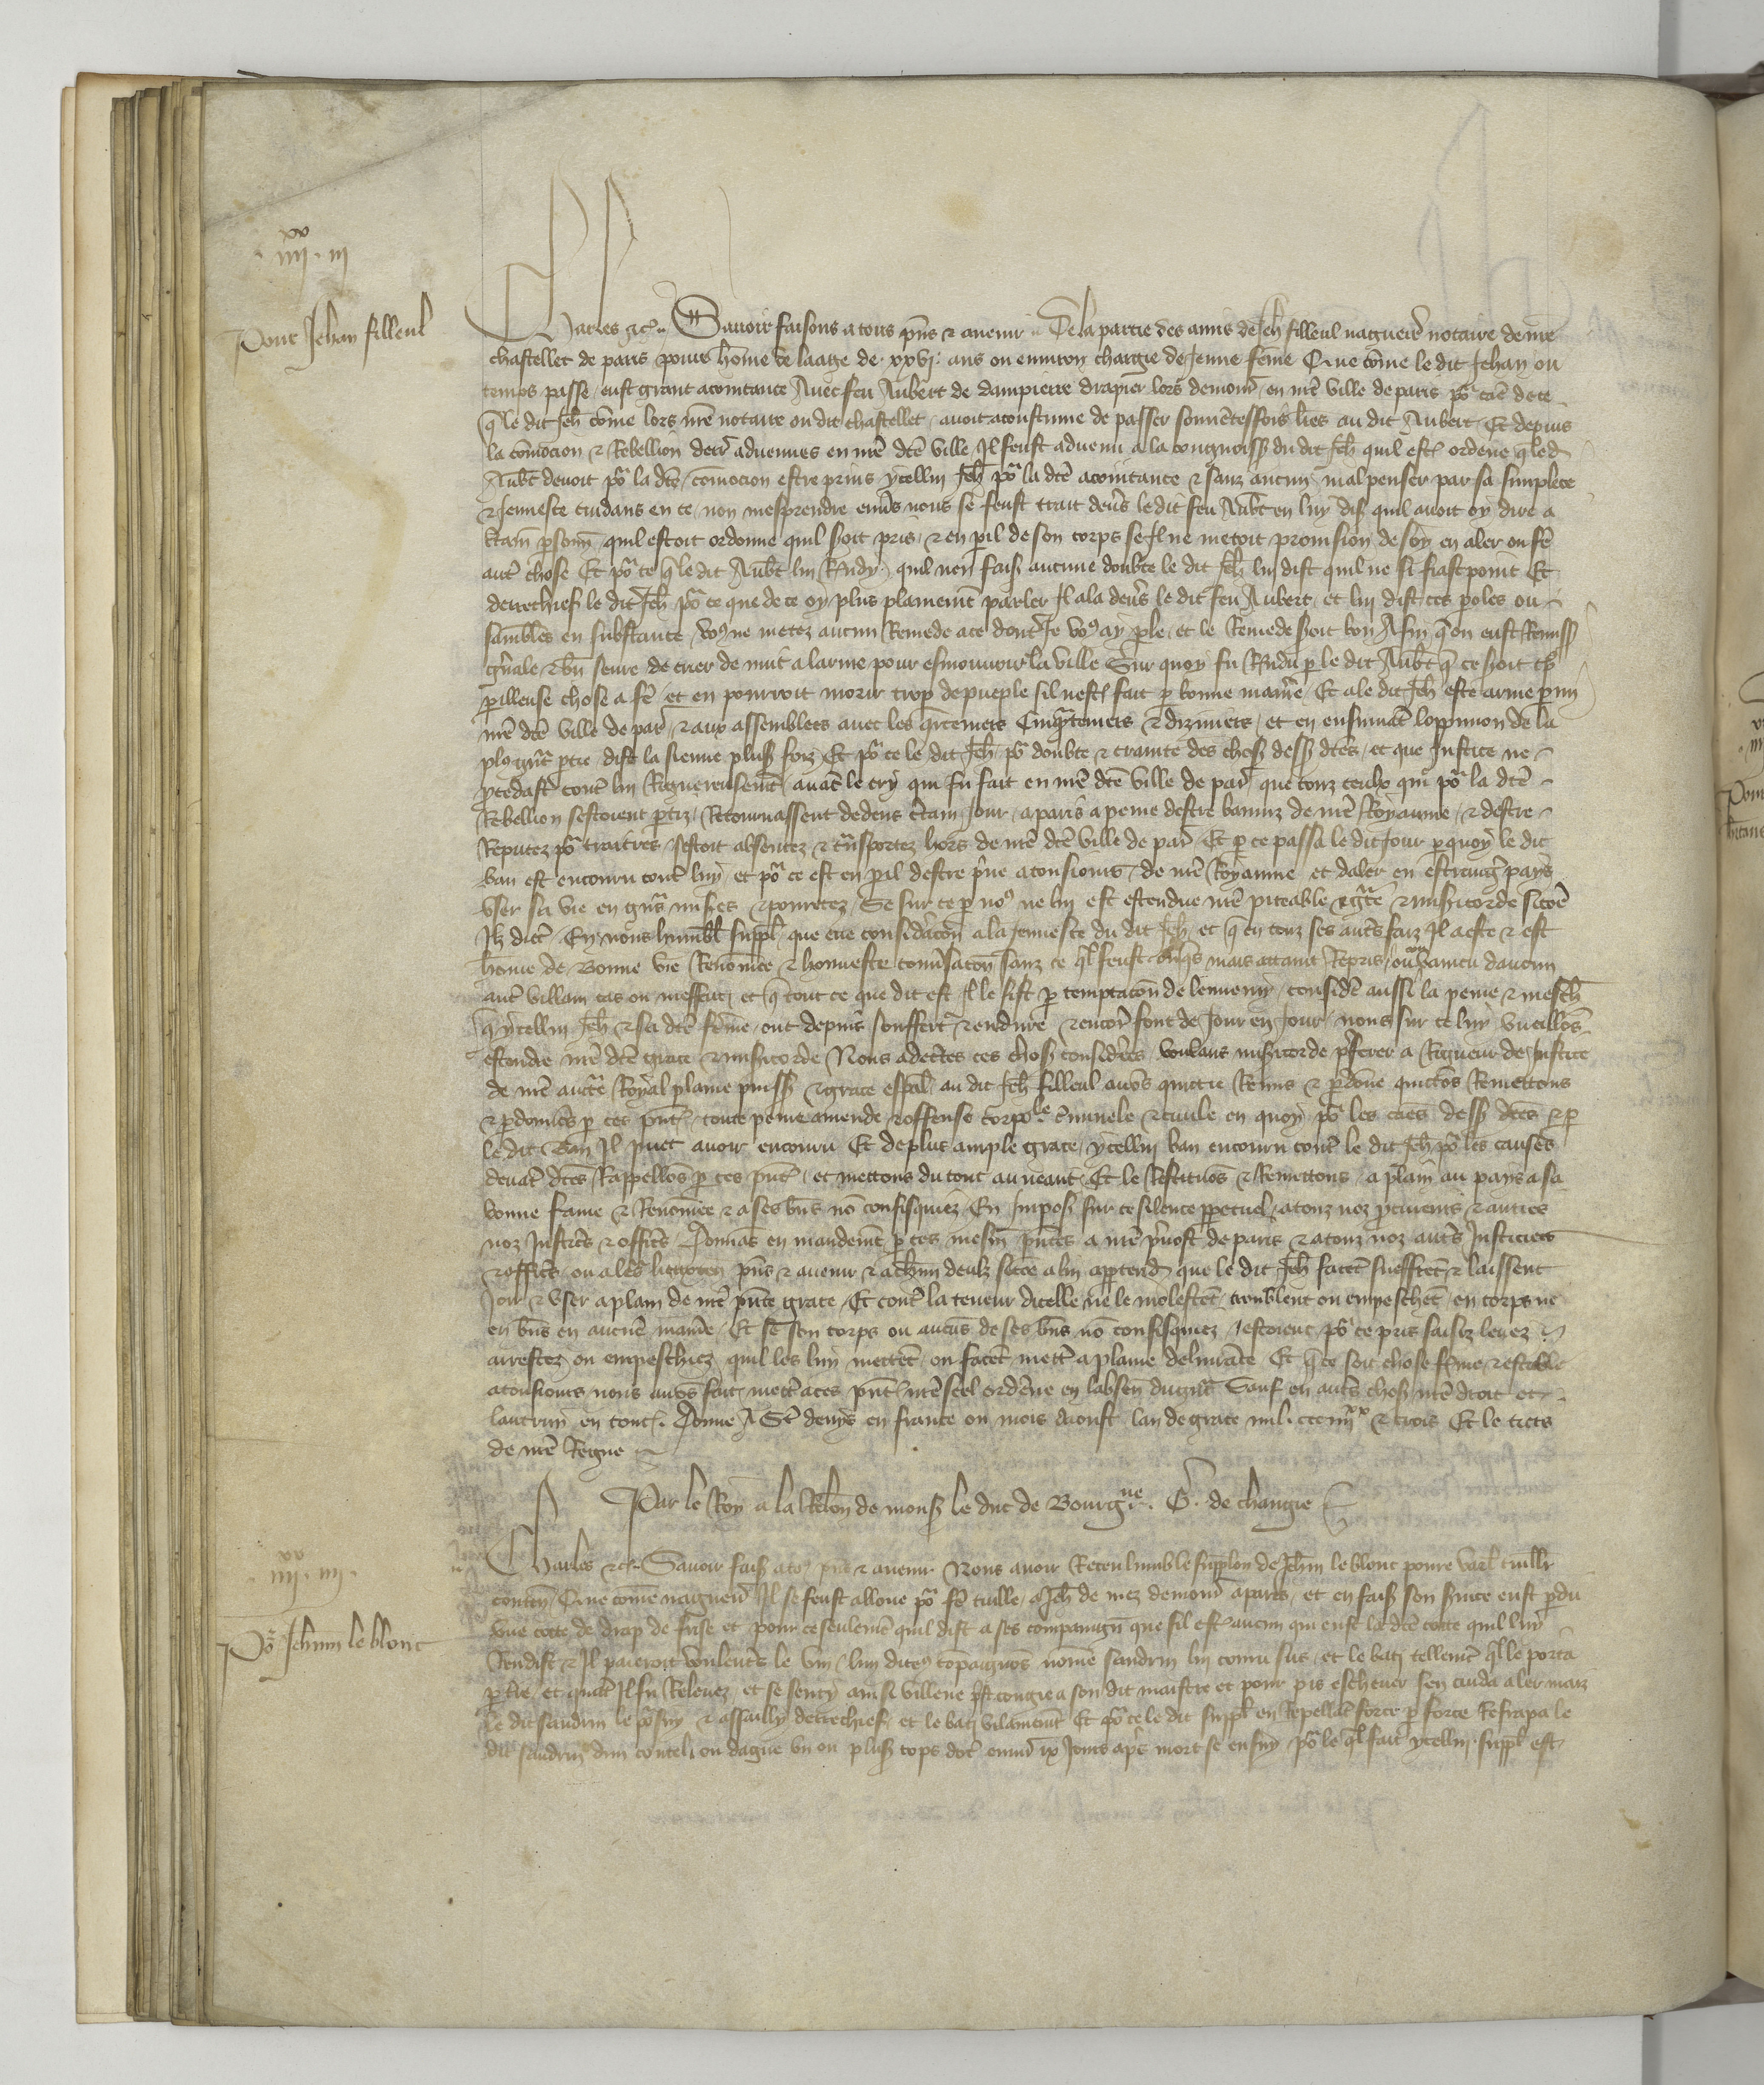 xx
. iiii . iii
Pour Jehan filleul
Charles etc. Savoir faisons a tous pns et avenir De la partie des amis de Jeh filleul nagueres notaire de nre
chastellet de paris povre home de laage de . xxvi . ans ou environ chargie de Jeune feme Que come le dit Jehan ou
temps passe eust grant acointance Avec feu Aubert de dampierre drapier lors demour en nre ville de paris por cae de ce
q le dit Jeh come lors nre notaire ou dit chastellet avoit acoustume de passer souventesfois lres au dit Aubert Et depuis
la comocion et Rebellion derr advenues en nre dce ville Il feust advenu a la congnoiss du dit Jeh quil est ordene q led
Aubt devoit por la dce comocion estre prins ycellui Jeh por la dce acointance et sanz aucun mal penser par sa simplece
et Jeunesce cuidans en ce non mesprendre envs nous se feust trait devs le dit feu Aubt en luy dis quil avoit oy dire a
ctain psonn quil estoit ordonne quil soit pris et en pil de son corps se Il ne metoit provision de soy en aler ou fe
aut chose Et por ce q le dit Aubt lui Rndy quil nen fais aucune doubte le dit Jeh lui dist quil ne si fiast point Et
derrechief le dit Jeh por ce que de ce oy plus plainemt parler Il ala devs le dit feu Aubert et lui dist ces poles ou
samblables en substance vos ne metez aucun Remede a ce dont Je vos ay ple et le Remede soit bon Afin q on eust Remiss
gnale et bn seure de crier de nuit alarme pour esmouvoir la ville Sur quoy fu Rndu p le dit Aubt q ce soit ts
pilleuse chose a fe et en pourroit morir trop de pueple sil nest fait p bonne manie Et a le dit Jeh este arme pmi
nre dce ville de par et aux assemblees avec les qrteniers Cinqteniers et dizeniers et en ensuivat loppinion de la
plus gnt ptie dist la sienne pluss foiz Et por ce le dit Jeh por doubte et crainte des choss dess dces et que Justice ne
pcedast cont lui Rigoureusemt avat le cry qui fu fait en nre dce ville de par que touz ceulx qui por la dce
Rebellion sestoient ptiz Retournassent dedens ctain Jour a paris a peine destre baniz de nre Royaume et destre
Reputez por traitres sestoit absentez et tnsportez hors de nre dce ville de par Et p ce passa le dit Jour p quoy le dit
ban est encouru cont luy et por ce est en pil destre pve a tousiours de nre Royaume et daler en estrang pays
user sa vie en gns miss et povretez Se sur ce p nos ne lui est estendue nre piteable gre et miscicorde sicoe
Ilz dict En nous humblt suppl que eue consideracon a la Jeunesce du dit Jeh et q en touz ses auts faiz Il a este et est
home de Bonne vie Renomee et honneste conversacon sanz ce ql feust onqs mais attaint Repris ou convaincu daucun
aut villain cas ou meffait et q tout ce que dit est Il le fist p temptacon de lennemy Conside aussi la peine et mesch
q ycellui Jeh et sa dce feme ont depuis souffert et endure et encor font de Jour en Jour nous sur ce luy vueillons
estendre nre dce grace et miscicorde Nous adectes ces choss considerees voulans miscicorde pferer a Rigueur de Justice
de nre aucte Royal plaine puiss et grace espal au dit Jeh filleul avos quictie Remis et pdone quictos Remettons
et pdonnos p ces pnt toute peine amende et offense corpole cminele et civile en quoy por les caes dess dces et p
le dit ban Il puet avoir encouru Et de plus ample grace ycellui ban encouru cont le dit Jeh por les causes
devat dces Rappellos p ces pnt et mettons du tout au neant Et le Restituos et Remettons a plain au pays a sa
bonne fame et Renomee et a ses bns no confisquiez En Imposs sur ce silence ppetuel a touz noz pcureurs et autres
noz Justices et officis Donnas en mandemt p ces mesm pntes a nre pvost de paris et a touz noz auts Justiciers
et officis ou a les lieuxten pns et avenir et a chun deulz sicoe a lui appartend que le dit Jeh facet sueffret et laissent
Joir et user a plain de nre pnte grace Et cont la teneur dicelle ne le molestet troublent ou empeschet en corps ne
en bns en aucue manie Et se son corps ou aucus de ses bns no confisquiez estoient por ce pris saisiz levez
arrestez ou empeschiez quil les luy mettet ou facet mett a plaine delivrace Et q ce soit chose ferme et estable
a tousiours nous avos fait mett a ces pnt nre seel ordene en labsen dugrt Sauf en auts choss nre droit et
lautruy en tout. Donne A St denys en france ou mois daoust lan de grace mil . ccc iiiixx et trois Et le tiers
de nre Regne
Par le Roy a la Relon de mons le duc de Bourgne . G . de changie
xx
. iiii . iiii .
Por Jehnin le blont
Charles etc. Savoir fais a tos pns et avenir Nous avoir Receu lumble supplon de Jehnin le blont povre varlt tuillr
conten Que come nagueres Il se feust alloue por fe tuille a Jeh de mez demour a paris et en fais son svice eust pdu
une cotte de drap de frise et pour ce seulemt quil dist a ses compaingn que sil est aucun qui eust la dce cotte quil luy
Rendist et Il paieroit voulents le vin lun diceus copaignos nome sandrin lui couru sus et le bati tellemt ql le porta
p tre et quat Il fu Relevez et se senty ainsi villene pst congie a son dit maistre et pour pis eschever sen cuida aler mais
le dit sandrin le porsuy et assailly derrechief et le bati vilainemt Et por ce le dit suppl en Repellat force p force Refrapa le
dit sandrin dun coutel ou dague un ou pluss cops dot envir ix Jours aps mort se ensuy por le ql fait ycellui suppl est